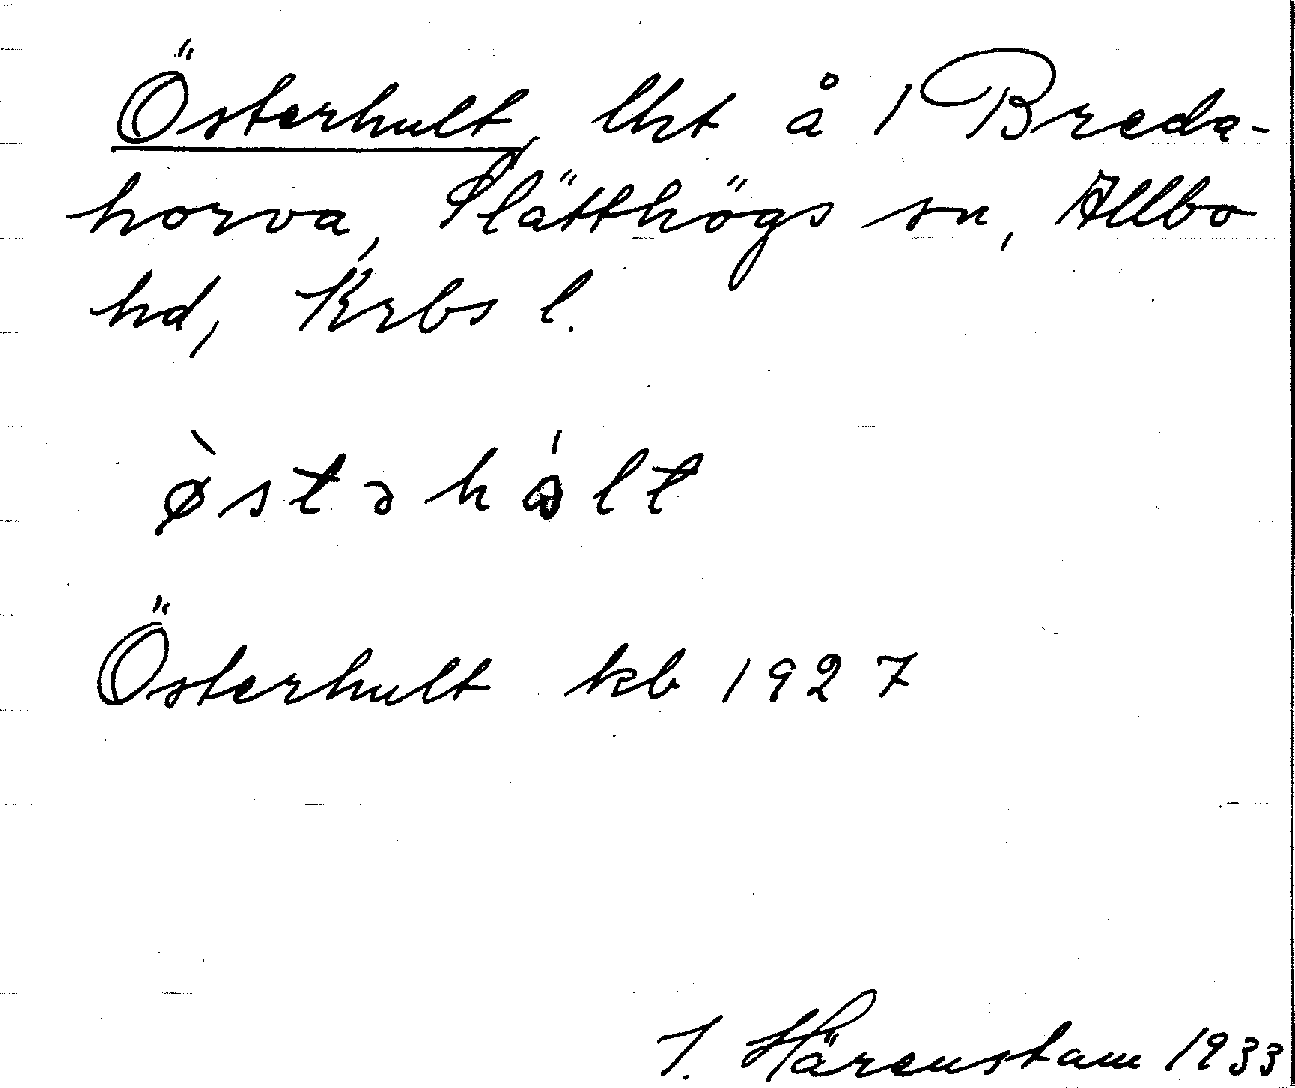 Österhult, lht å 1 Breda-
horva, Slätthögs sn, Allbo
hd, Krbs l.
ø̀stəhålt
Österhult kb 1927
J. Härenstam 1933